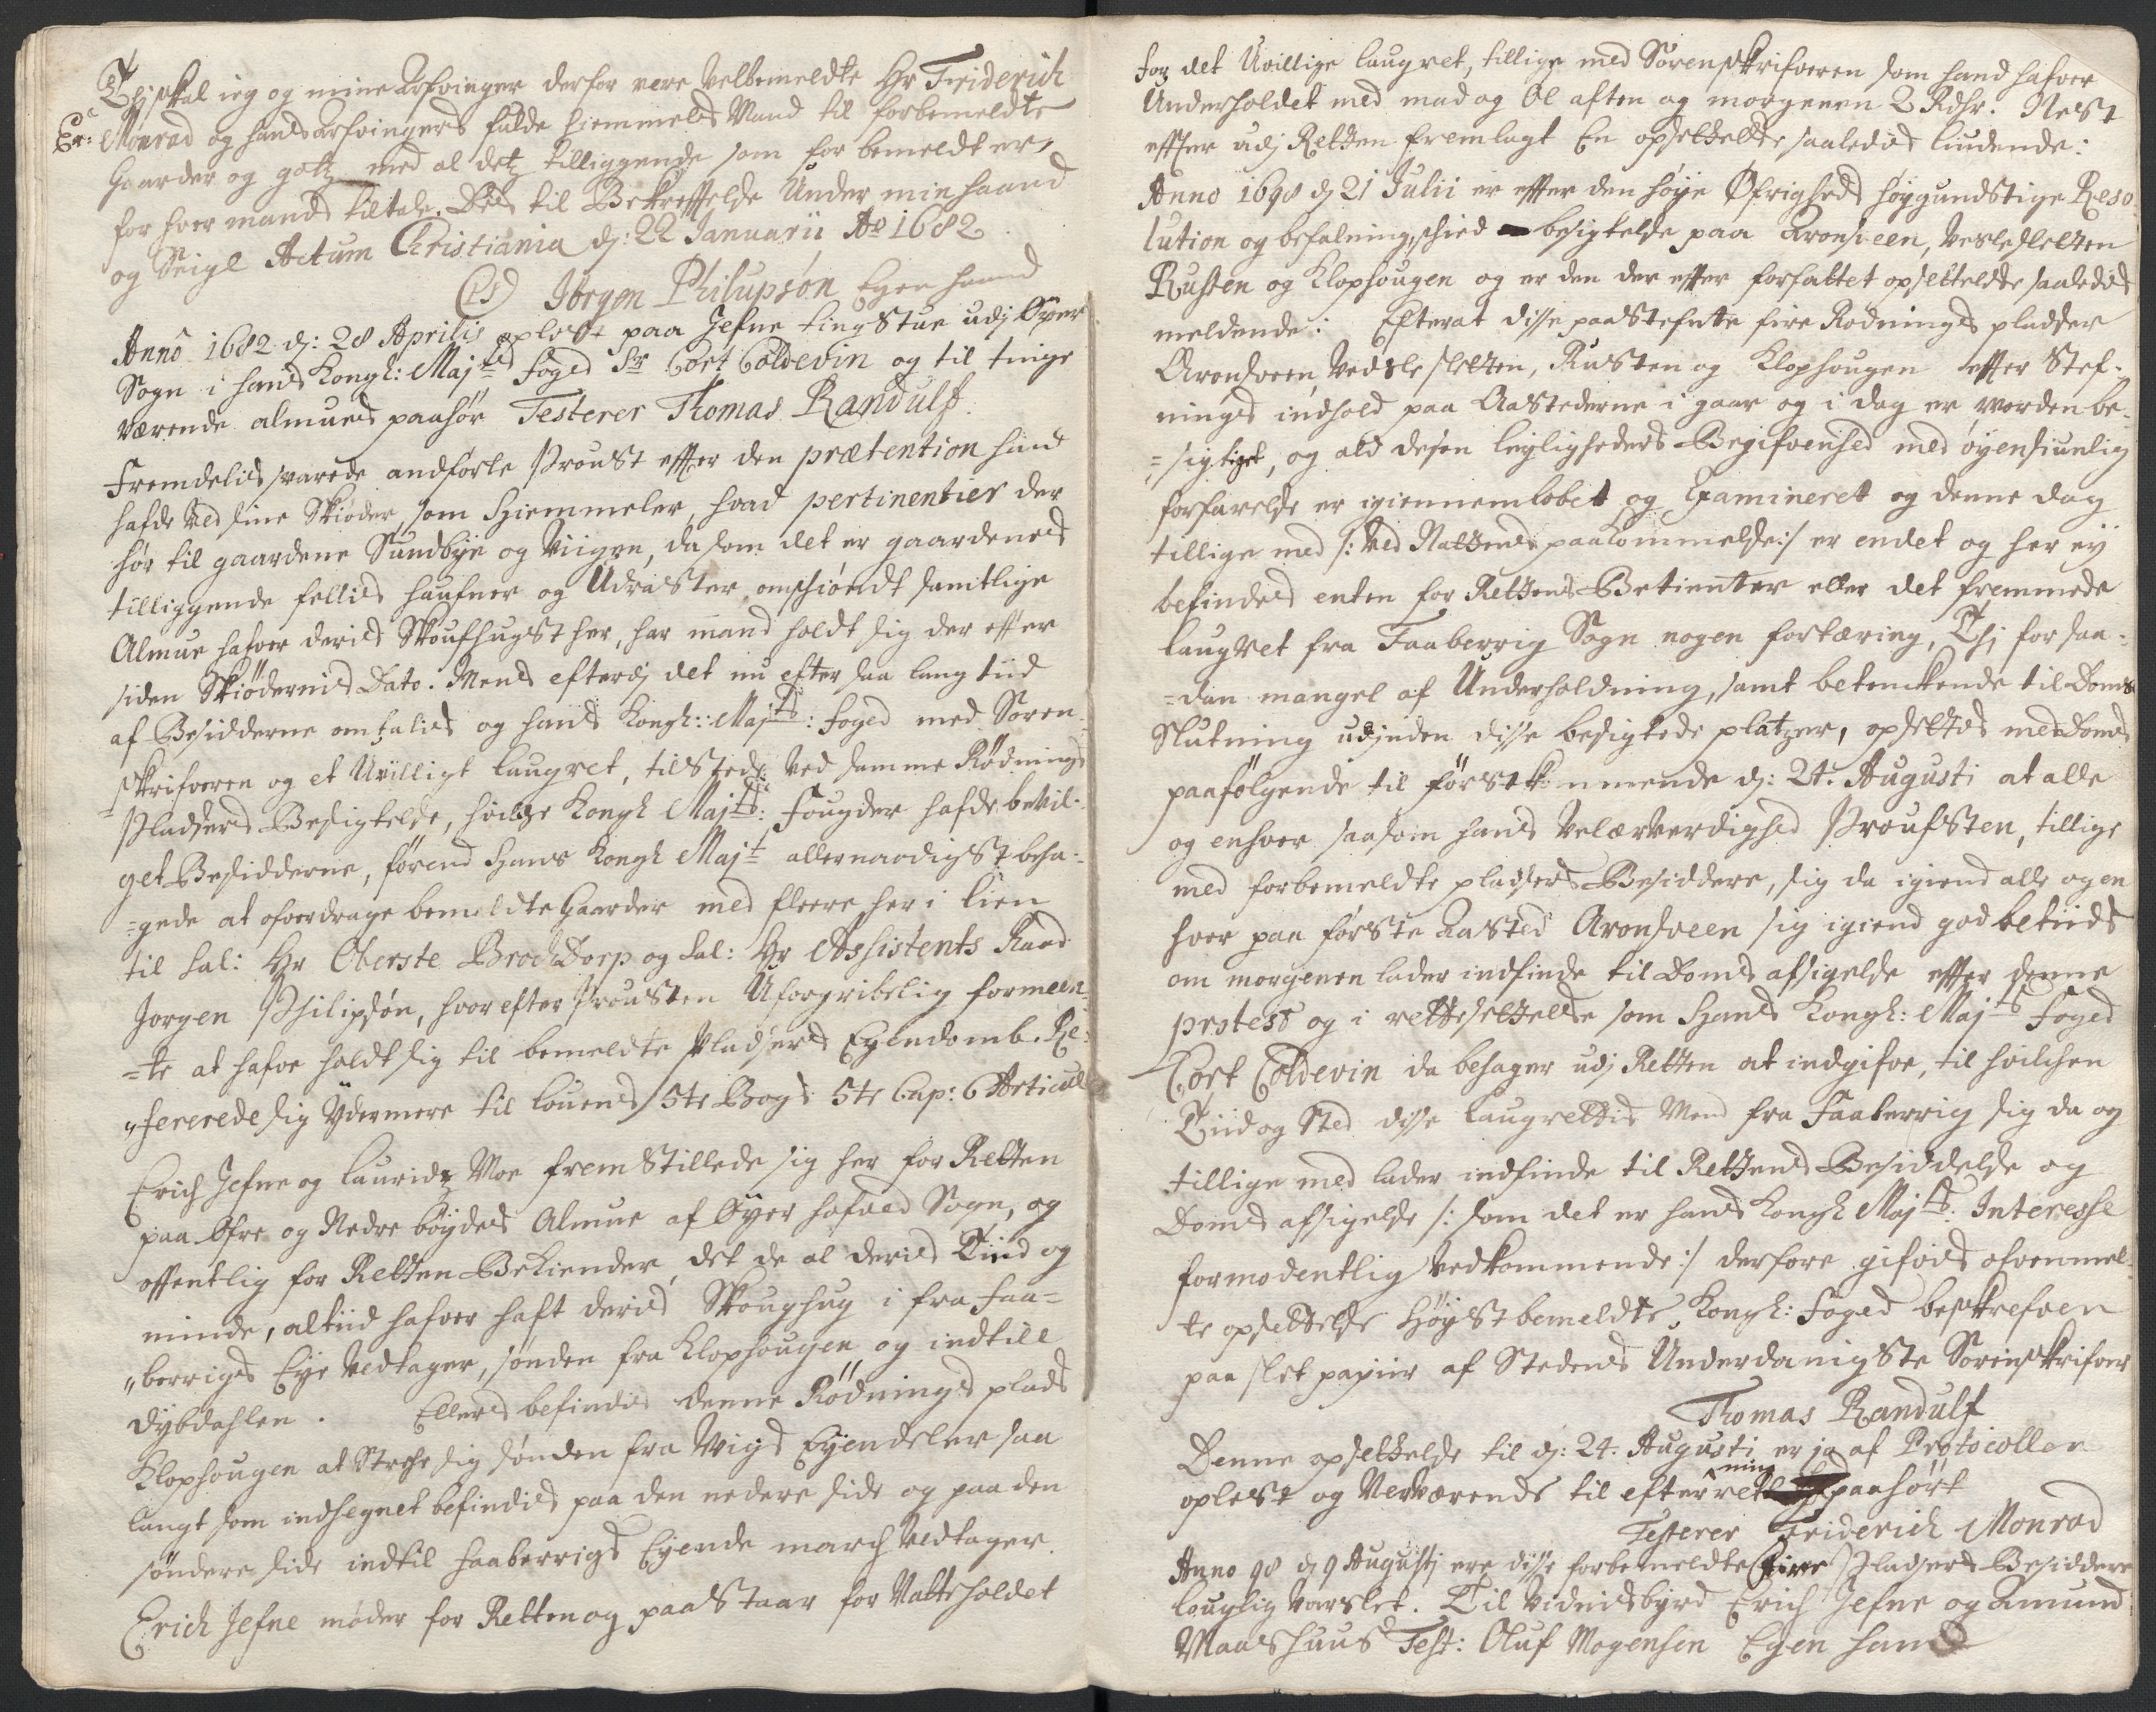 Thj skal ieg og mine Arfvinger derfor vere Velbemeldte Hr Friderich
Er: Monrad og hands Arfvingers fulde hiemmels Mand til forbemeldte
Gaarder og gotz med al detz tilliggende som for bemeldt er,
for hver mands tiltale. Dets til Bekreffelse Under min haand
og Seigl Actum Christiania dj: 22 Januarii Ao 1682
(LS) Jørgen Philupsøn Egen haand
Anno 1682 dj: 28 Aprilis oplest paa Jefne tingstue udj Øyer
Sogn i hands Kongl: Majts foged Sr Cort Coldevin og til tinge
værende almues paahør Testerer Thomas Randulf.
Fremdelis svarede andførte Proust effter den prætention hand
hafde Ved sine Skiøder, som Hiemmeler, hvad pertinentier der
hør til gaardene Sundbye og Viigen, da som det er gaardenes
tilliggende fellis haufner og Udraster, omschiøndt samtlige
Almue hafver deris Skoufhugst her, har mand holdt sig der effter
siden Skiødernis Dato. Mens efterdj det nu efter saa lang tiid
af Besidderne omtalis og hands Kongl: Majts: foged med Soren-
=skrifveren og et Uvilligt laugret, tilstede Ved samme Rødnings
Pladsers Besigtelse, hvilche Kongl Majts: Fougder hafde bevil-
get Besidderne, førend Hans Kongl Majt allernaadigst beha-
=gede at ofverdrage bemeldte Gaarder med fleere her i lien
til Sal: Hr Oberste Brochdorp og Sal: Hr Assistents Raad
Jorgen Philipsøn, hvorefter Prousten Uforgribelig formeen-
=te at hafve holdt sig til bemeldte Pladsers Eyendomb. Re-
"fererede sig Ydermere til lovens 5te Bogs 5te Cap: 6 Articul
Erich Jefne og Lauridz Moe fremstillede sig her for Retten
paa Øfre og Nedre bøydes Almue af Øyer hofved Sogn, og
offentlig for Retten Bekiender, det de al deris Tiid og
minde, altiid hafver haft deris Skoughug i fra Faa-
"berrigs Eye Vedtager, sønden fra Klophougen og indtill
Dybdahlen. Ellers befindis denne Rødnings plads
Klophougen at Streche sig sønden fra Wigs Eyendeler saa
langt som indhegnet befindis paa den nedere side og paa den
søndere side indtil Faaberrigs Eyende march Vedtager.
Erich Jefne møder for Retten og paastaar for Natteholdet
for det Uvillige laugret, tillige med Sorenskrifveren som hand hafver
Underholdet med mad og Øl aften og morgenen 2 Rdhr. Nest
effter udj Retten fremlagt En opsettelse saaledes liudende:
Anno 1698 dj 21 Julii er effter den høye Øfrigheds høygundstige Reso
lution og befalning, schied besigtelse paa Aronsveen, Veslesletten
Rusten og Klophougen og er den der effter forfattet opsettelse saaledes
meldende: Efterat disse paastefnte fire Rødnings pladser
Aronsveen, Vedslesletten, Rusten og Klophougen effter Stef-
nings indhold paa Aastederne i gaar og i dag er worden be-
=sigtiget, og ald desen leyligheders Begifvenhed med øyensiunlig
forfarelse er igiennemløbet og Examineret og denne dag
tillige med /: Ved Nattens paakommelse :/ er endet og her ey
befindes enten for Rettens Betienter eller det fremmede
laugret fra Faaberrig Sogn nogen fortæring, Thj for saa-
=dan mangel af Underholdning, samt betenckende til Doms
Slutning udjnden disse besigtede platzer, opsettes med Doms
paafølgende til førstkommende dj: 24. Augusti at alle
og enhver saasom hands Velærværdighed Proufsten, tillige
med forbemeldte pladsers Besiddere, sig da igiend alle og en
hver paa første Aasted Aronsveen sig igiend god betiids
om morgenen lader indfinde til Doms afsigelse effter denne
protest og i rettesettelse som Hands Kongl: Majts Foged
Cort Coldevin da behager udj Retten at indgifve, til hvilchen
Tiid og Sted disse laugrettis Mend fra Faaberrig sig da og
tillige med lader indfinde til Rettens Besiddelse og
Doms afsigelse /: som det er hands Kongl Majts: Interesse
formodentlig Vedkommende :/ derfore gifves ofvenmel-
te opsettelse Høystbemeldte Kongl: Foged beskrefven
paa slet papiir af Stedens Underdanigste Sorenskrifver
Thomas Randulf
Denne opsettelse til dj: 24. Augusti er ja af Protocollen
oplest og Nerværende til efterretning paahørt
Testerer Friderich Monrad
Anno 98 dj 9 Augustj ere disse forbemeldte fire Pladsers Besiddere
louglig Varslet. Til Vidnisbyrd Erich Jefne og Amund
Maashuus Test: Oluf Mogensen Egen haand